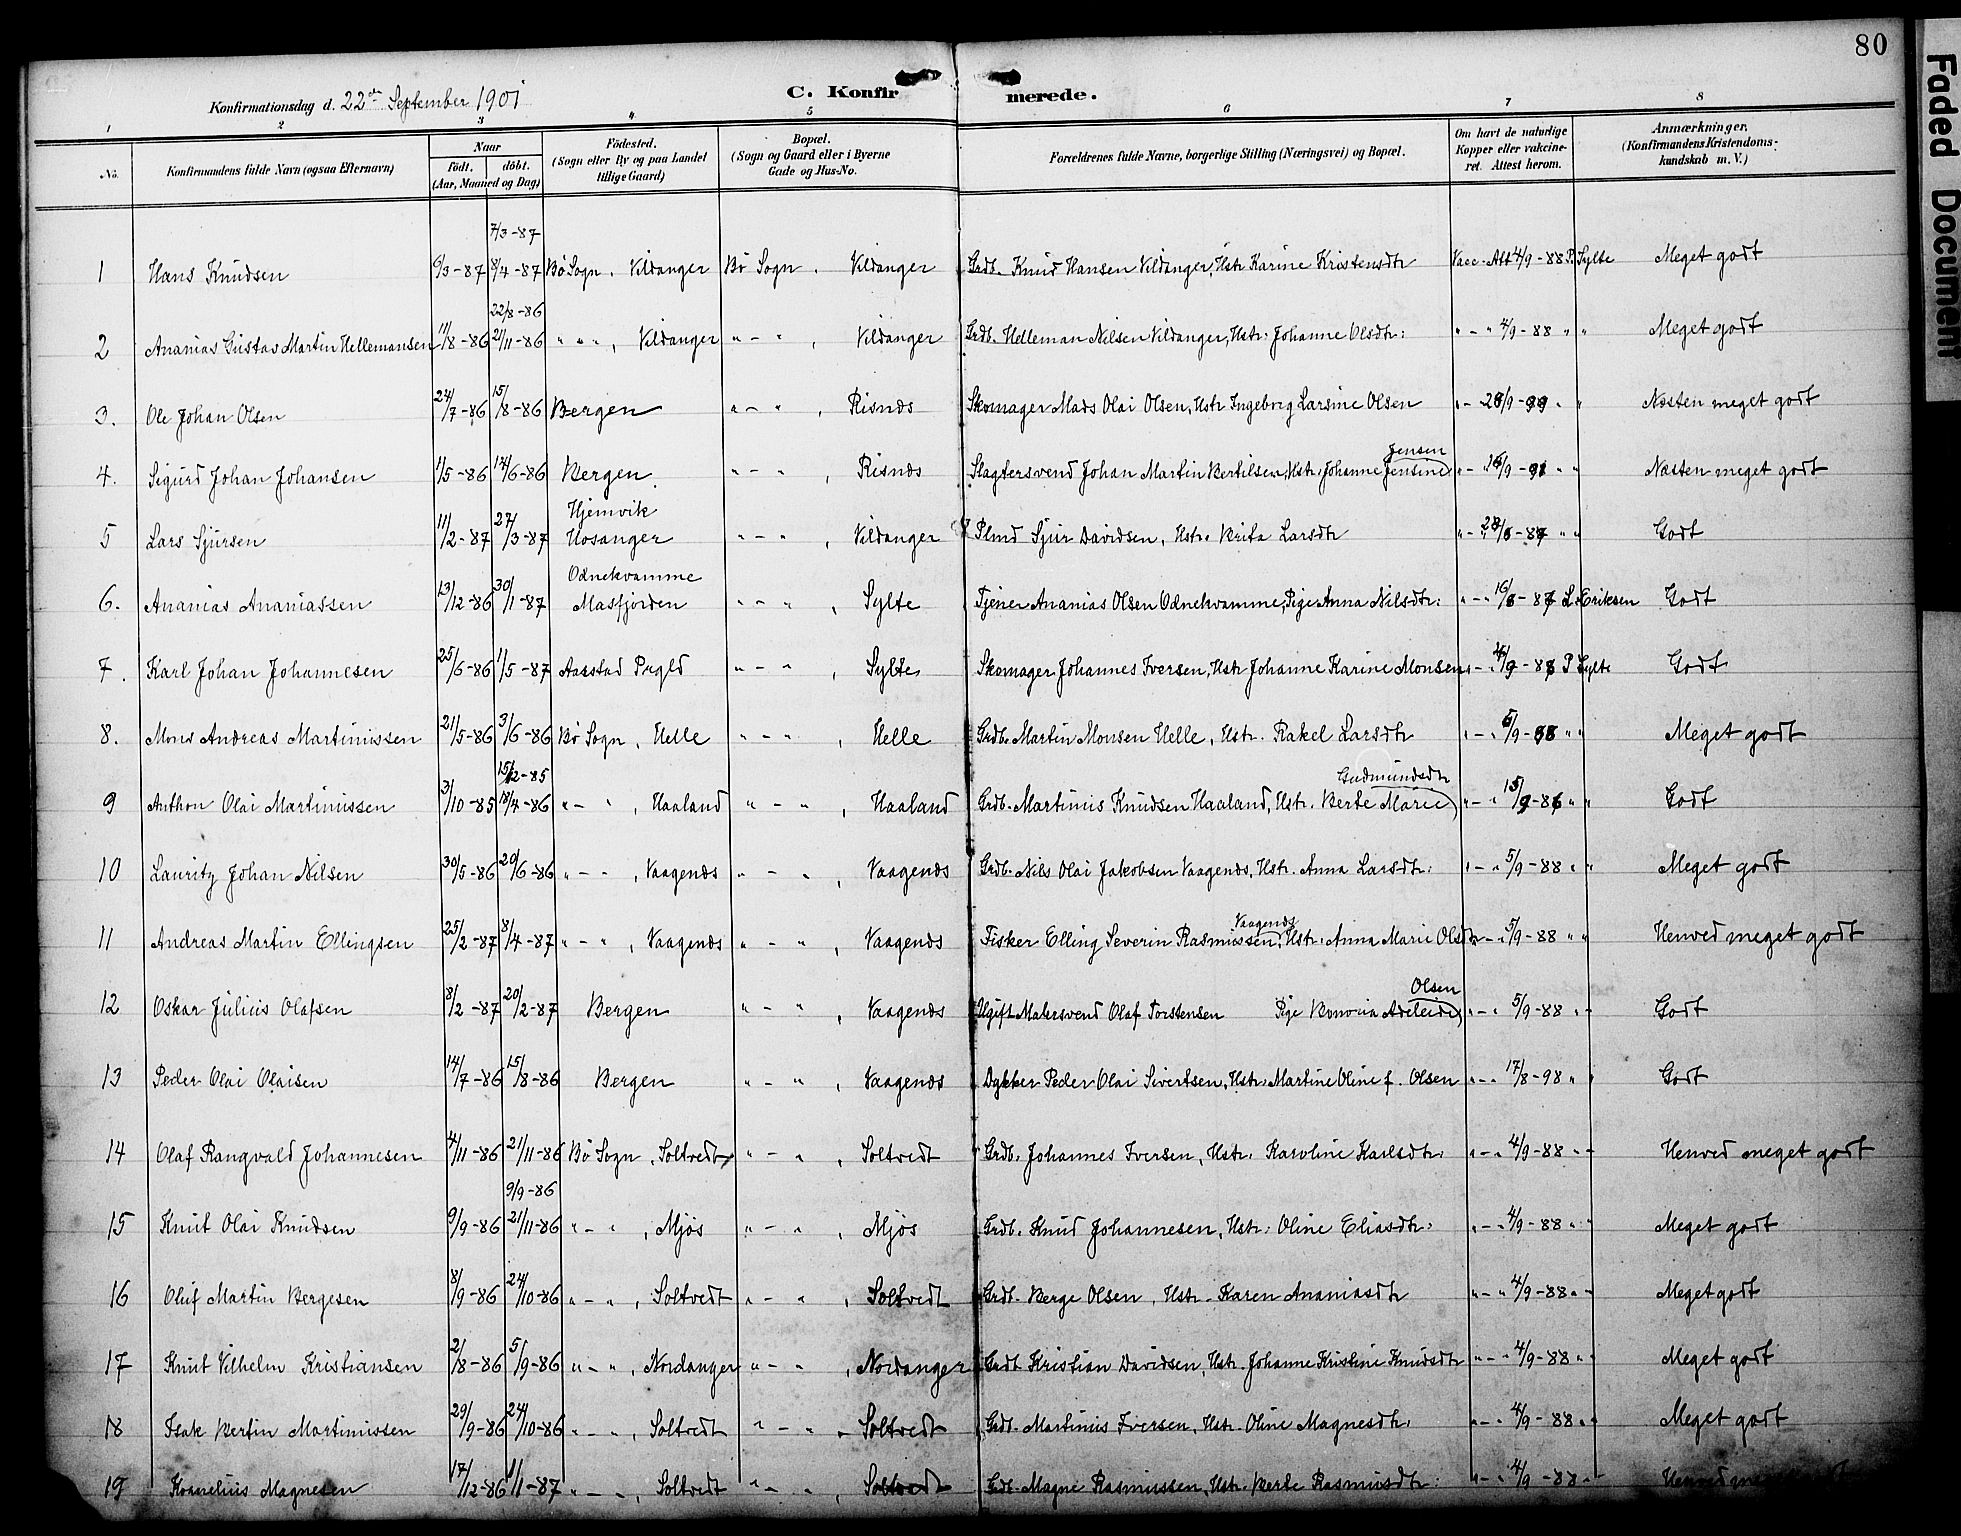 80
Faded Document
Konfirmationsdag d. 22de September 1901
C. Konfirmerede.
1 2 3 4 5 6 7 8
No. Konfirmandens fulde Navn (ogsaa Efternavn) Naar födt. döbt. (Aar, Maaned og Dag) Födested. (Sogn eller By og paa Landet tillige Gaard) Bopæl. (Sogn og Gaard eller i Byerne Gade og Hus-No. Forældrenes fulde Navne, borgerlige Stilling (Næringsvei) og Bopæl. Om havt de naturlige Kopper eller vakcineret. Attest herom. Anmærkninger. (Konfirmandens Kristendomskundskab m. V.)
7/3-87
1 Hans Knudsen 6/3-87 8/4-87 Bö Sogn, Vildanger Bö Sogn, Vildanger Grdb. Knud Hansen Vildanger, Hstr Karine Kristensdtr Vacc. Att 4/9-88 P. Sylte Meget godt
22/8-86
2 Ananias Gustav Martin Hellemansen 11/8-86 21/11-86 " " ", Vildanger " - ", Vildanger Grdb. Helleman Nilsen Vildanger, Hstr. Johanne Olsdtr: " - " 4/9-88 " " Meget godt
3. Ole Johan Olsen 24/7-86 15/8-86 Bergen " - ", Risnæs Skomager Mads Olai Olsen, Hstr Ingeborg Larsine Olsen Næsten meget godt
Jensen
4. Sigurd Johan Johansen 1/5-86 14/6-86 Bergen " - ", Risnæs Slagtersvend Johan Martin Bertilsen, Hstr. Johanne Jensine Næsten meget godt
Hjemvik
5 Lars Sjursen 11/2-87 27/3-87 Hosanger " - ", Vildanger Plmd Sjur Davidsen, Hstr. Brita Larsdtr Godt
Odnekvamme
6. Ananias Ananiassen 13/12-86 30/1-87 Masfjorden " - ", Sylte Tjener Ananias Olsen Odnekvamme, Pige Anna Nilsdtr: L. Eriksen Godt
7. Karl Johan Johannesen 25/6-86 1/5-87 Aasstad Prgld " - ", Sylte Skomager Johannes Iversen, Hstr Johanne Karine Monsen P Sylte Godt
8. Mons Andreas Martinussen 21/5-86 3/6-86 Bö Sogn, Helle " - ", Helle Grdb. Martin Monsen Helle, Hstr. Rakel Larsdtr Meget godt
15/12-85 Gudmundsdtr
9 Anthon Olai Martinussen 3/10-85 18/4-86 " - ", Haaland " - ", Haaland Grdb. Martinus Knudsen Haaland, Hstr. Berte Marie Godt
10 Lauritz Johan Nilsen 30/5-86 20/6-86 " - ", Vaagenæs " - ", Vaagenæs Grdb. Nils Olai Jakobsen Vaagenæs, Hstr. Anna Larsdtr: " - " 5/9-88 " " Meget godt
Vaagenæs
11 Andreas Martin Ellingsen 25/2-87 8/4-87 " - ", Vaagenæs " - ", Vaagenæs Fisker Elling Severin Rasmussen, Hstr. Anna Marie Olsdtr - " 5/9-88 " " Henved meget godt
Olsen
12 Oskar Julius Olafsen 8/2-87 20/2-87 Bergen " - ", Vaagenæs Ugift Malersvend Olaf Torstensen Pige Adeleide " - " 5/9-88 " " Godt
13 Peder Olai Olaisen 14/7-86 15/8-86 Bergen " - ", Vaagenæs Dykker Peder Olai Sivertsen, Hstr. Martine Oline f. Olsen " - " 17/8-98 " " Godt
14 Olaf Rangvald Johannesen 4/11-86 21/11-86 Bö Sogn, Soltvedt " - ", Soltvedt Grdb. Johannes Iversen, Hstr. Karoline Karlsdtr: " - " 4/9-88 " " Henved meget godt
9/9-86
15 Knut Olai Knudsen 9/9-86 21/11-86 " - ", Mjös " - ", Mjös Grdb. Knud Johannesen, Hstr: Oline Eliasdtr: " - " 4/9-88 " " Meget godt
16 Oluf Martin Bergesen 8/9-86 24/10-86 " - ", Soltvedt " - ", Soltvedt Grdb. Berge Olsen, Hstr. Karen Ananiasdtr " - " 4/9-88 " " Meget godt
17 Knut Vilhelm Kristiansen 2/8-86 5/9-86 " - ", Nordanger " - ", Nordanger Grdb. Kristian Davidsen, Hstr. Johanne Kristine Knudsdtr " - " 4/9-88 " " Meget godt
18 Isak Bertin Martinussen 29/9-86 24/10-86 " - ", Soltvedt " - ", Soltvedt Grdb. Martinus Iversen, Hstr. Oline Magnesdtr: " - " 4/9-88 " " Meget godt
19 Kornelius Magnesen 17/12-86 1/1-87 " - ", Soltvedt " - ", Soltvedt Grdb. Magne Rasmussen, Hstr. Berte Rasmusdtr: " - " 4/9-88 " " Henved